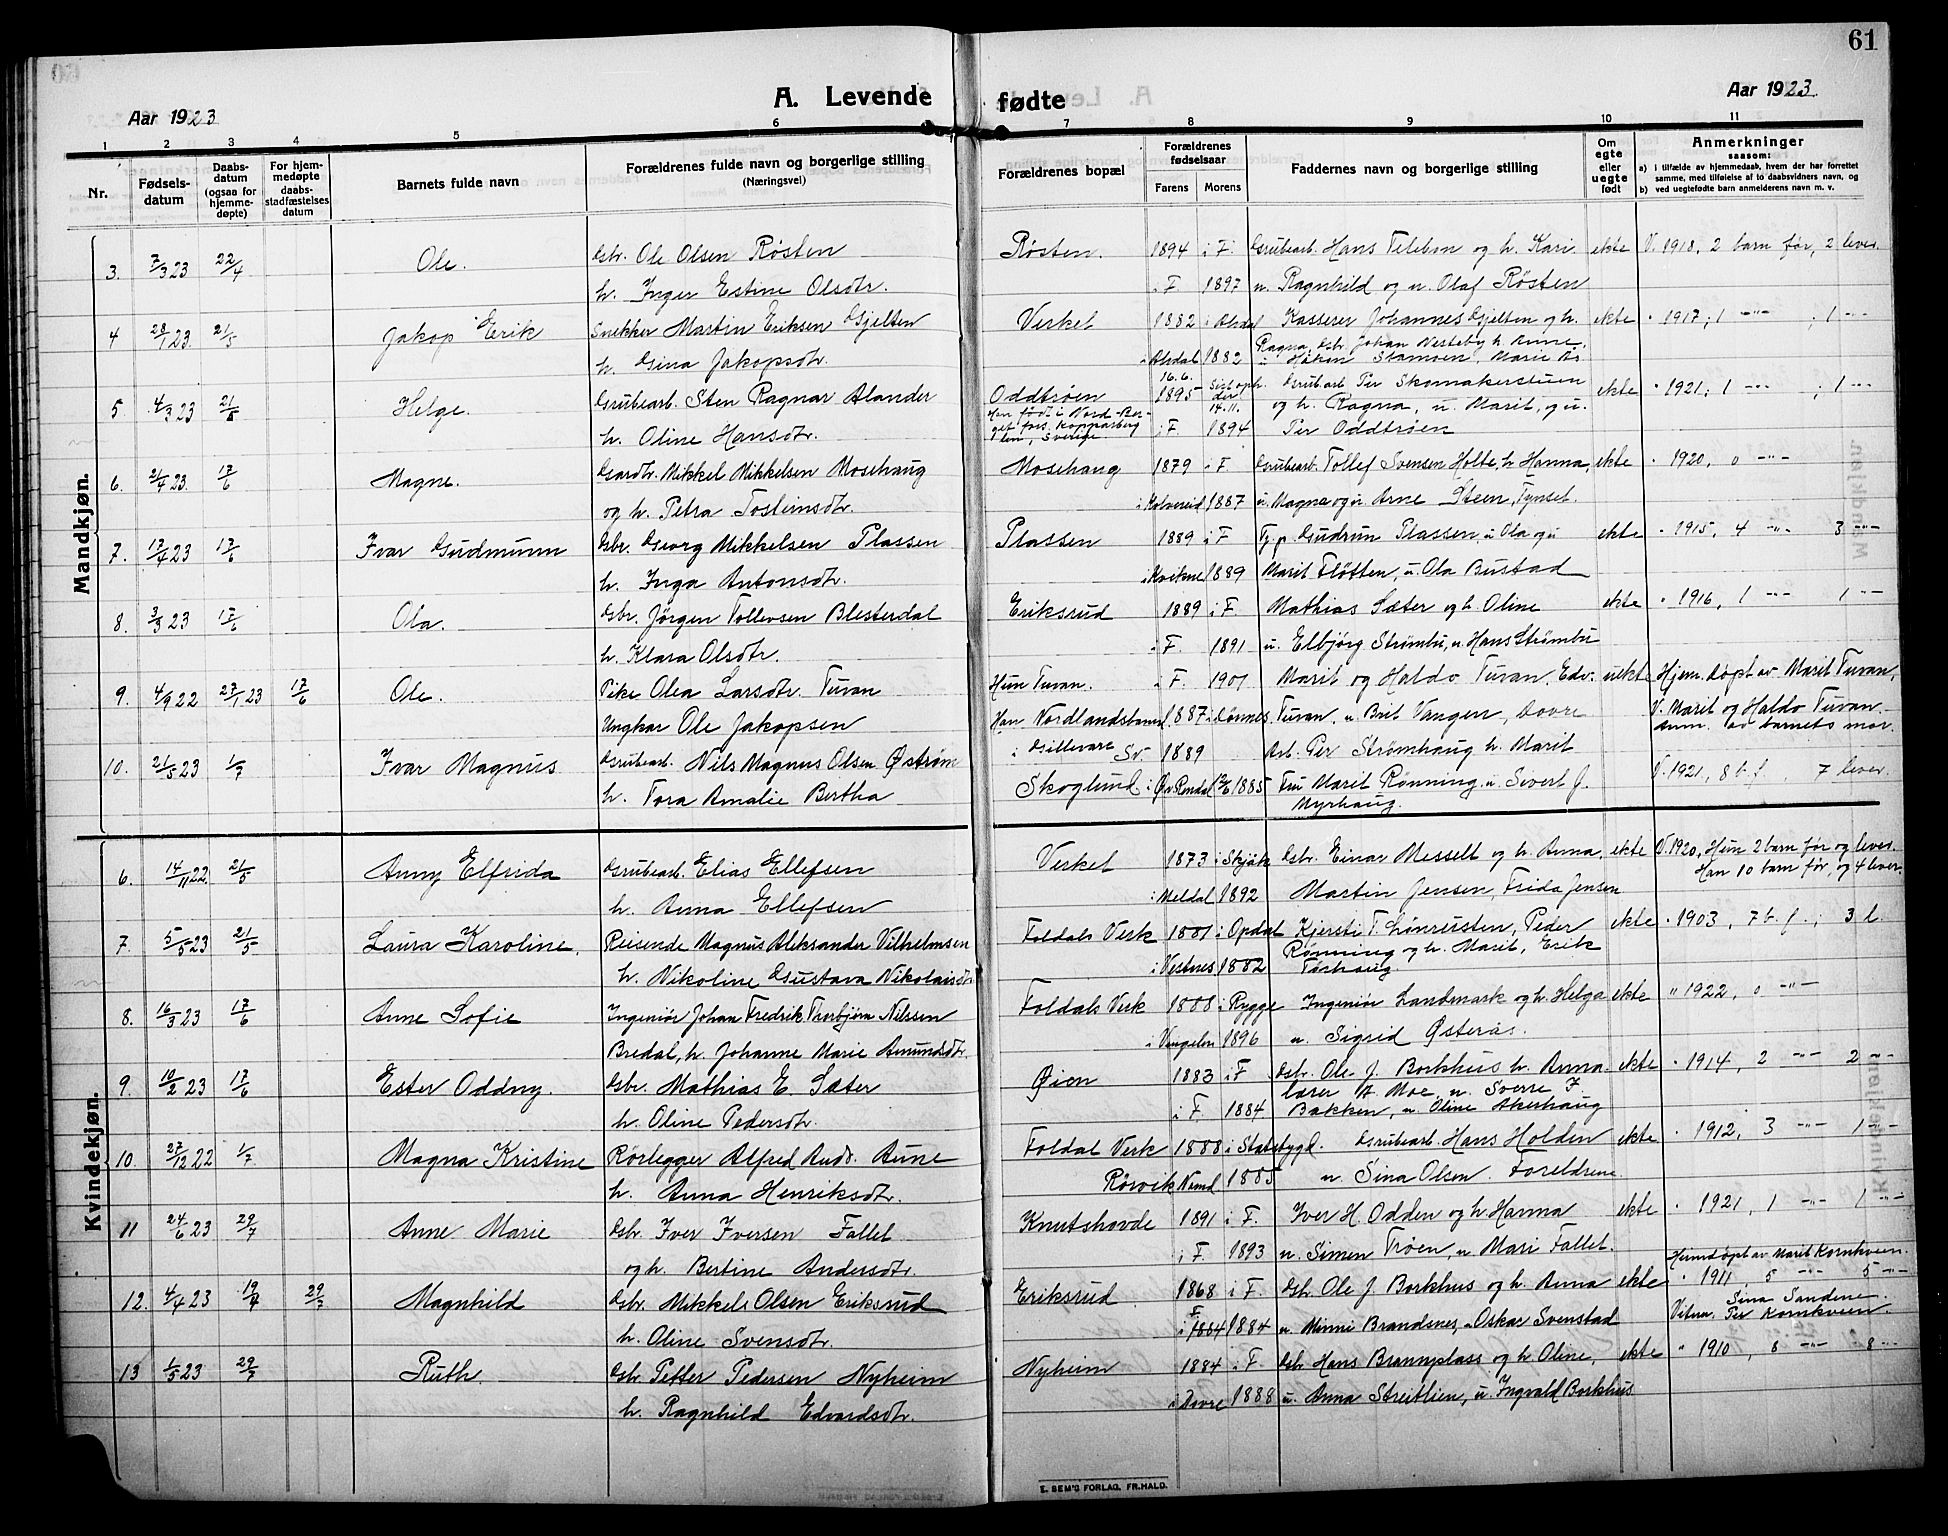 61
Aar 1923
A. Levende fødte
Aar 1923.
1 2 3 4 5 6 7 8 9 10 11
Nr.
Fødsels-datum
Daabs-datum (ogsaa for hjemme-døpte)
For hjem-medøpte daabs-stadfæstelses datum
Barnets fulde navn
Forældrenes fulde navn og borgerlige stilling
(Næringsvei)
Forældrenes bopæl
Forældrenes fødselsaar
Farens Morens
Faddernes navn og borgerlige stilling
Om egte eller uegte født
Anmerkninger
saasom:
a) i tilfælde av hjemmedaab, hvem der har forrettet
samme, med tilføielse af to daabsvidners navn, og
b) ved uegtefødte barn anmelderens navn m. v.
Mandkjøn.
3. 7/3 23 22/4 Ole. Gbr. Ole Olsen Røsten Røsten. 1894 i F. Grubearb. Hans Telebon og h. Kari. ekte V. 1918, 2 barn før, 2 lever.
h. Inger Estine Olsdtr. i F. 1897 u. Ragnhild og u. Olaf Røsten
4 28/1 23 21/5 Jakop Erik Snekker Martin Eriksen Gjelten Verket 1882 i Alvdal Kasserer Johannes Gjelten og h. ekte " 1917, 1 -"- , 1 -"-
Ragna, Gbr. Johan Vesteby h. Anne,
h. Gina Jakopsdtr. i Alvdal 1882 Håken Stamoen, Marie
5 4/3 23 21/5 Helge. Grubearb. Sten Ragnar Alander Oddtrøen 16.6. 1895 Grubearb Per Skomakerstuen ekte " 1921, 1 -"- , 1 -"-
Han født i Nord-Ber-
get fors. Kopparberg
len, Sverige 14.11.
og h. Ragna, u. Marit, og u.
h. Oline Hansdtr. i F. 1894 Per Oddtrøen
6. 2/4 23. 17/6 Magne. Gardbr. Mikkel Mikkelsen Mosehaug Mosehaug 1879 i F. Grubearb. Tollef Svensen Holte, h. Hanna, ekte " 1920, 0 -"-
og h. Petra Tosteinsdtr. i Kolvereid 1887 u. Magna og u. Arne Steen, Tynset.
7. 17/4 23 17/6 Ivar Gudmunn Gbr. Georg Mikkelsen Plassen Plassen 1889 i F. Tj.p. Gudrun Plassen, u Ola og u ekte " 1915, 4 -"- 3 -"-
h. Inga Antonsdtr. i Kvikne 1889 Marit Fløtten, u. Ola Bustad
8. 3/3 23 17/6 Ola. Gbr. Jörgen Tollevsen Blesterdal Eriksrud 1889 i F. Mathias Sæter og h. Oline ekte " 1916, 1 -"- 1 -"-
h. Klara Olsdtr. i F. 1891 u. Elbjørg Strømbu, u. Hans Strømbu
9. 4/9 22 27/1 23 17/6 Ole. Pike Olea Larsdtr. Turan Hun Turan. i F. 1901 Marit og Haldo Turan. Edv. uekte Hjem.døpt av Marit Turan,
Ungkar Ole Jakopsen Han Nordlandsbanen 1887 i Dønnes. Turan, u. Brit Vangen, Dovre V. Marit og Haldo Turan.
Anm. av barnets mor.
10. 21/5 23 1/7 Ivar Magnus Grubearb. Nils Magnus Olsen Østrøm i Gellevare Sv. 1889 Arb. Per Strømhaug h. Marit
h. Tora Amalie Bertha Skoglund i Øv. Rendal 1885 Fru Marit Rønning, u. Sivert J. V. 1921, 8 b. f. 7 lever.
Myrhaug.
Kvindekjøn.
6. 14/11 22 21/5 Anny Elfrida Grubearb. Elias Ellefsen Verket 1873 i Skjåk Gbr. Einar Messelt og h. Anna, ekte V. 1920, Hun 2 barn før og lever.
Han 10 barn før, og 4 lever.
h. Anna Ellefsen i Meldal 1892 Martin Jensen, Frida Jensen
7. 5/5 23 21/5 Laura Karoline. Reisende Magnus Aleksander Vilhelmsen Foldals Verk 1881 i Opdal Kjersti T. Lönrusten, Peder ekte " 1903, 7 b. f., 3 l.
Rønning og h. Marit, Erik
h. Nikoline Gustava Nikolaisdtr. i Vestnes 1882
8. 16/3 23 17/6 Anne Sofie Ingeniør Johan Fredrik Torbjørn Nilssen Foldals Verk 1888 i Rygge Ingeniör Landmark og h. Helga ekte " 1922, 0 -"-
Bredal, h. Johanne Marie Amundsdtr. i Vingelen 1896 u. Sigrid Østerås.
9. 10/2 23 17/6 Ester Oddny. Gbr. Mathias E. Sæter Øien 1883 i F. Gbr. Ole J. Borkhus h. Anna. ekte " 1914, 2 -"- 2 -"-
lærer A. Moe, u. Sverre F.
h. Oline Pedersdtr. i F. 1884 Bakken, u. Oline Akerhaug
10. 27/12 22 1/7 Magna Kristine Rørlegger Alfred Andr. Aune Foldal Verk 1888 i Stadsbygd. Grubearb. Hans Holden ekte " 1912, 3 -"- 1 -"-
h. Anna Henriksdtr. Rörvik Namd. 1885 u. Sina Olsen. Foreldrene.
11 24/6 23 29/7 Anne Marie Gbr. Iver Iversen Fallet Knutshovde 1891 i F. Iver H. Odden og h. Hanna ekte " 1921, 1 -"- 1 -"-
og h. Bertine Andersdtr. i F. 1893 u. Simen Trøen, u. Mari Fallet.
Hjemdøpt av Marit Kornkveen.
12. 4/4 23 19/4 29/7 Magnhild Gbr. Mikkel Olsen Eriksrud Eriksrud 1868 i F. Gbr. Ole J. Borkhus og h. Anna ekte " 1911, 5 -"- 5 -"-
Sina Sandene.
h. Oline Svensdtr. i F. 1884 1884 u. Minni Brandsnes, u Oskar Svenstad Vitner. Per Kornkveen.
13 1/5 23 29/7 Ruth. Gbr Petter Pedersen Nyheim Nyheim 1884 i F. Gbr Hans Brannplass og h Oline, ekte " 1910, 8 -"- 8 -"-
h. Ragnhild Edvardsdtr. i Dovre 1888 u. Anna Streitlien, u. Ingvald Borkhus
E. SEM'S FORLAG, FR.HALD.